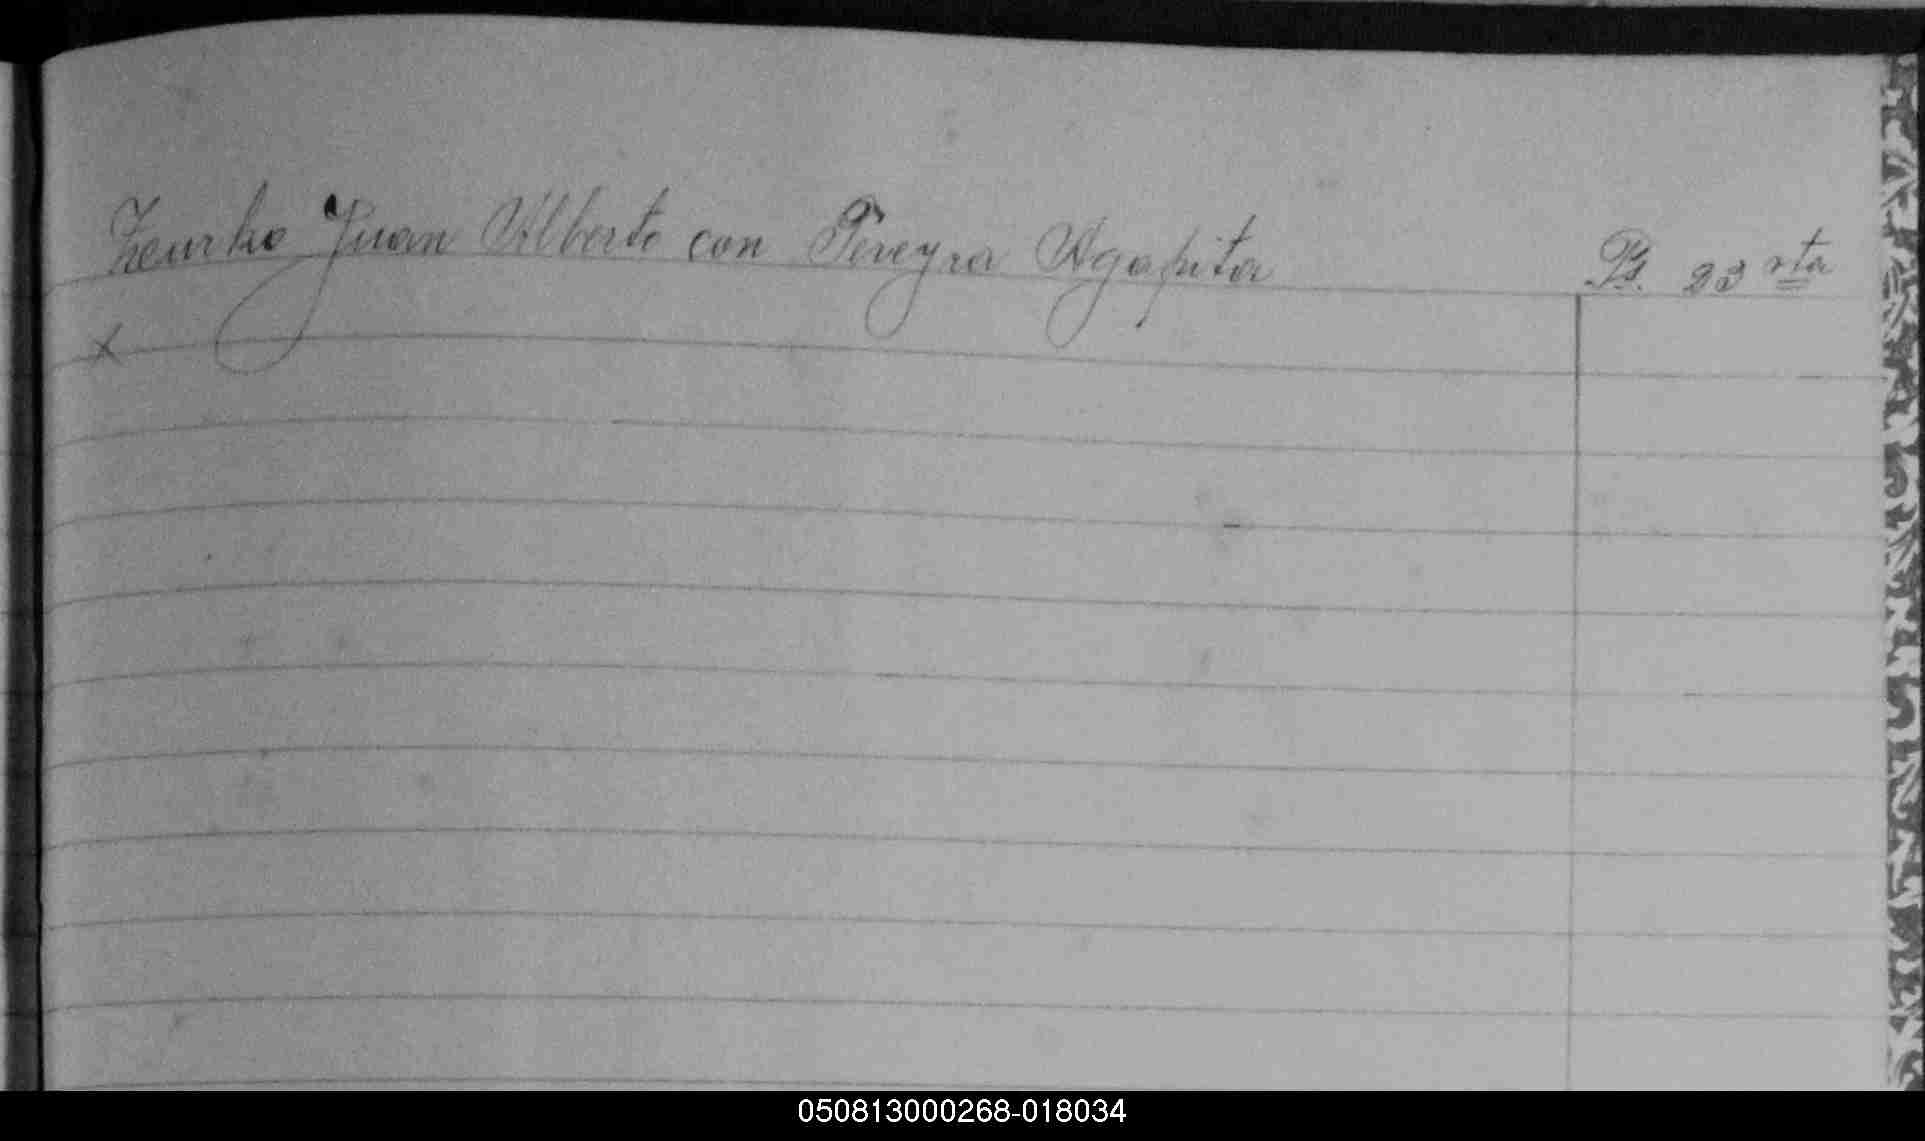 Juan Alberto con Pereyra Agapita Pg. 23 vta
x
050813000268-018034